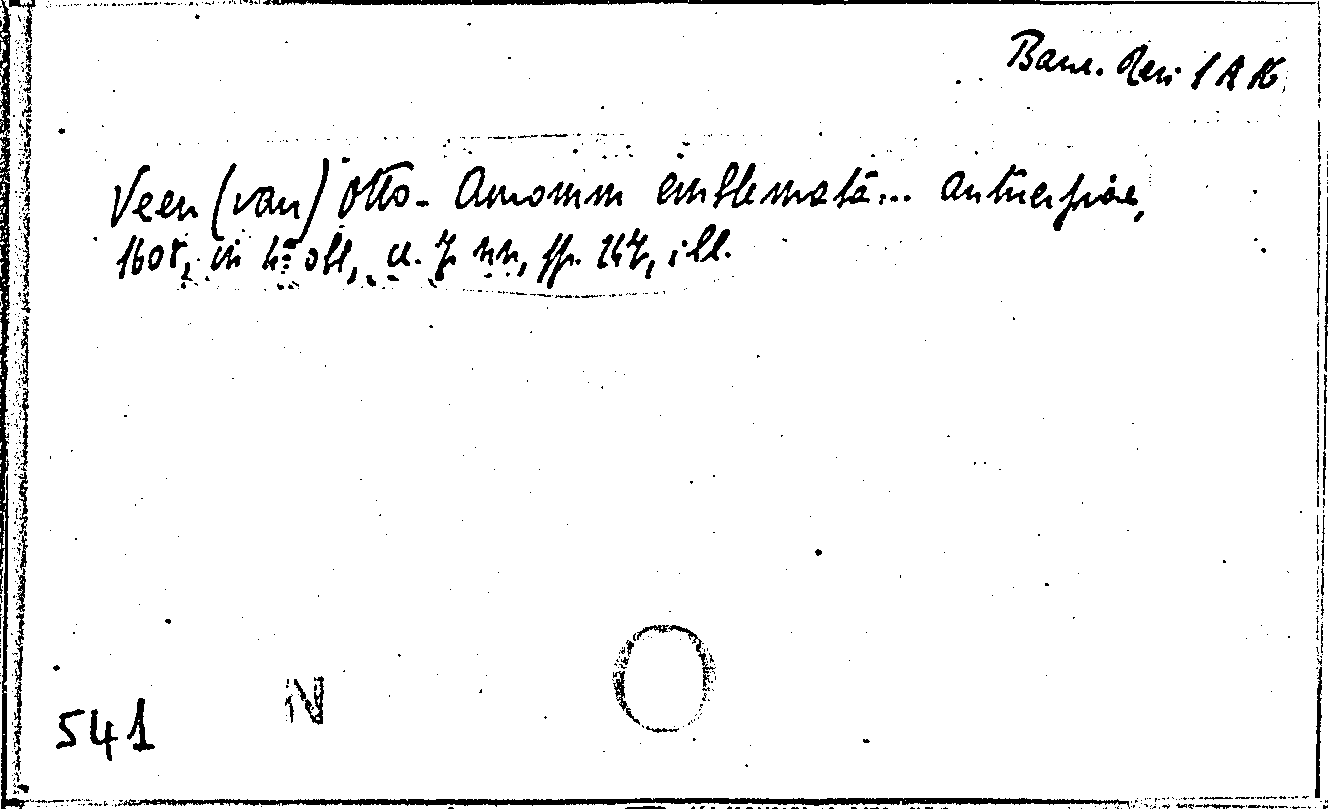 Veen (van) Otto - Amorum emblemata... Antuerpiae,
1608, in 4° obl, c. 7 nn, pp. 247, ill.
541
N